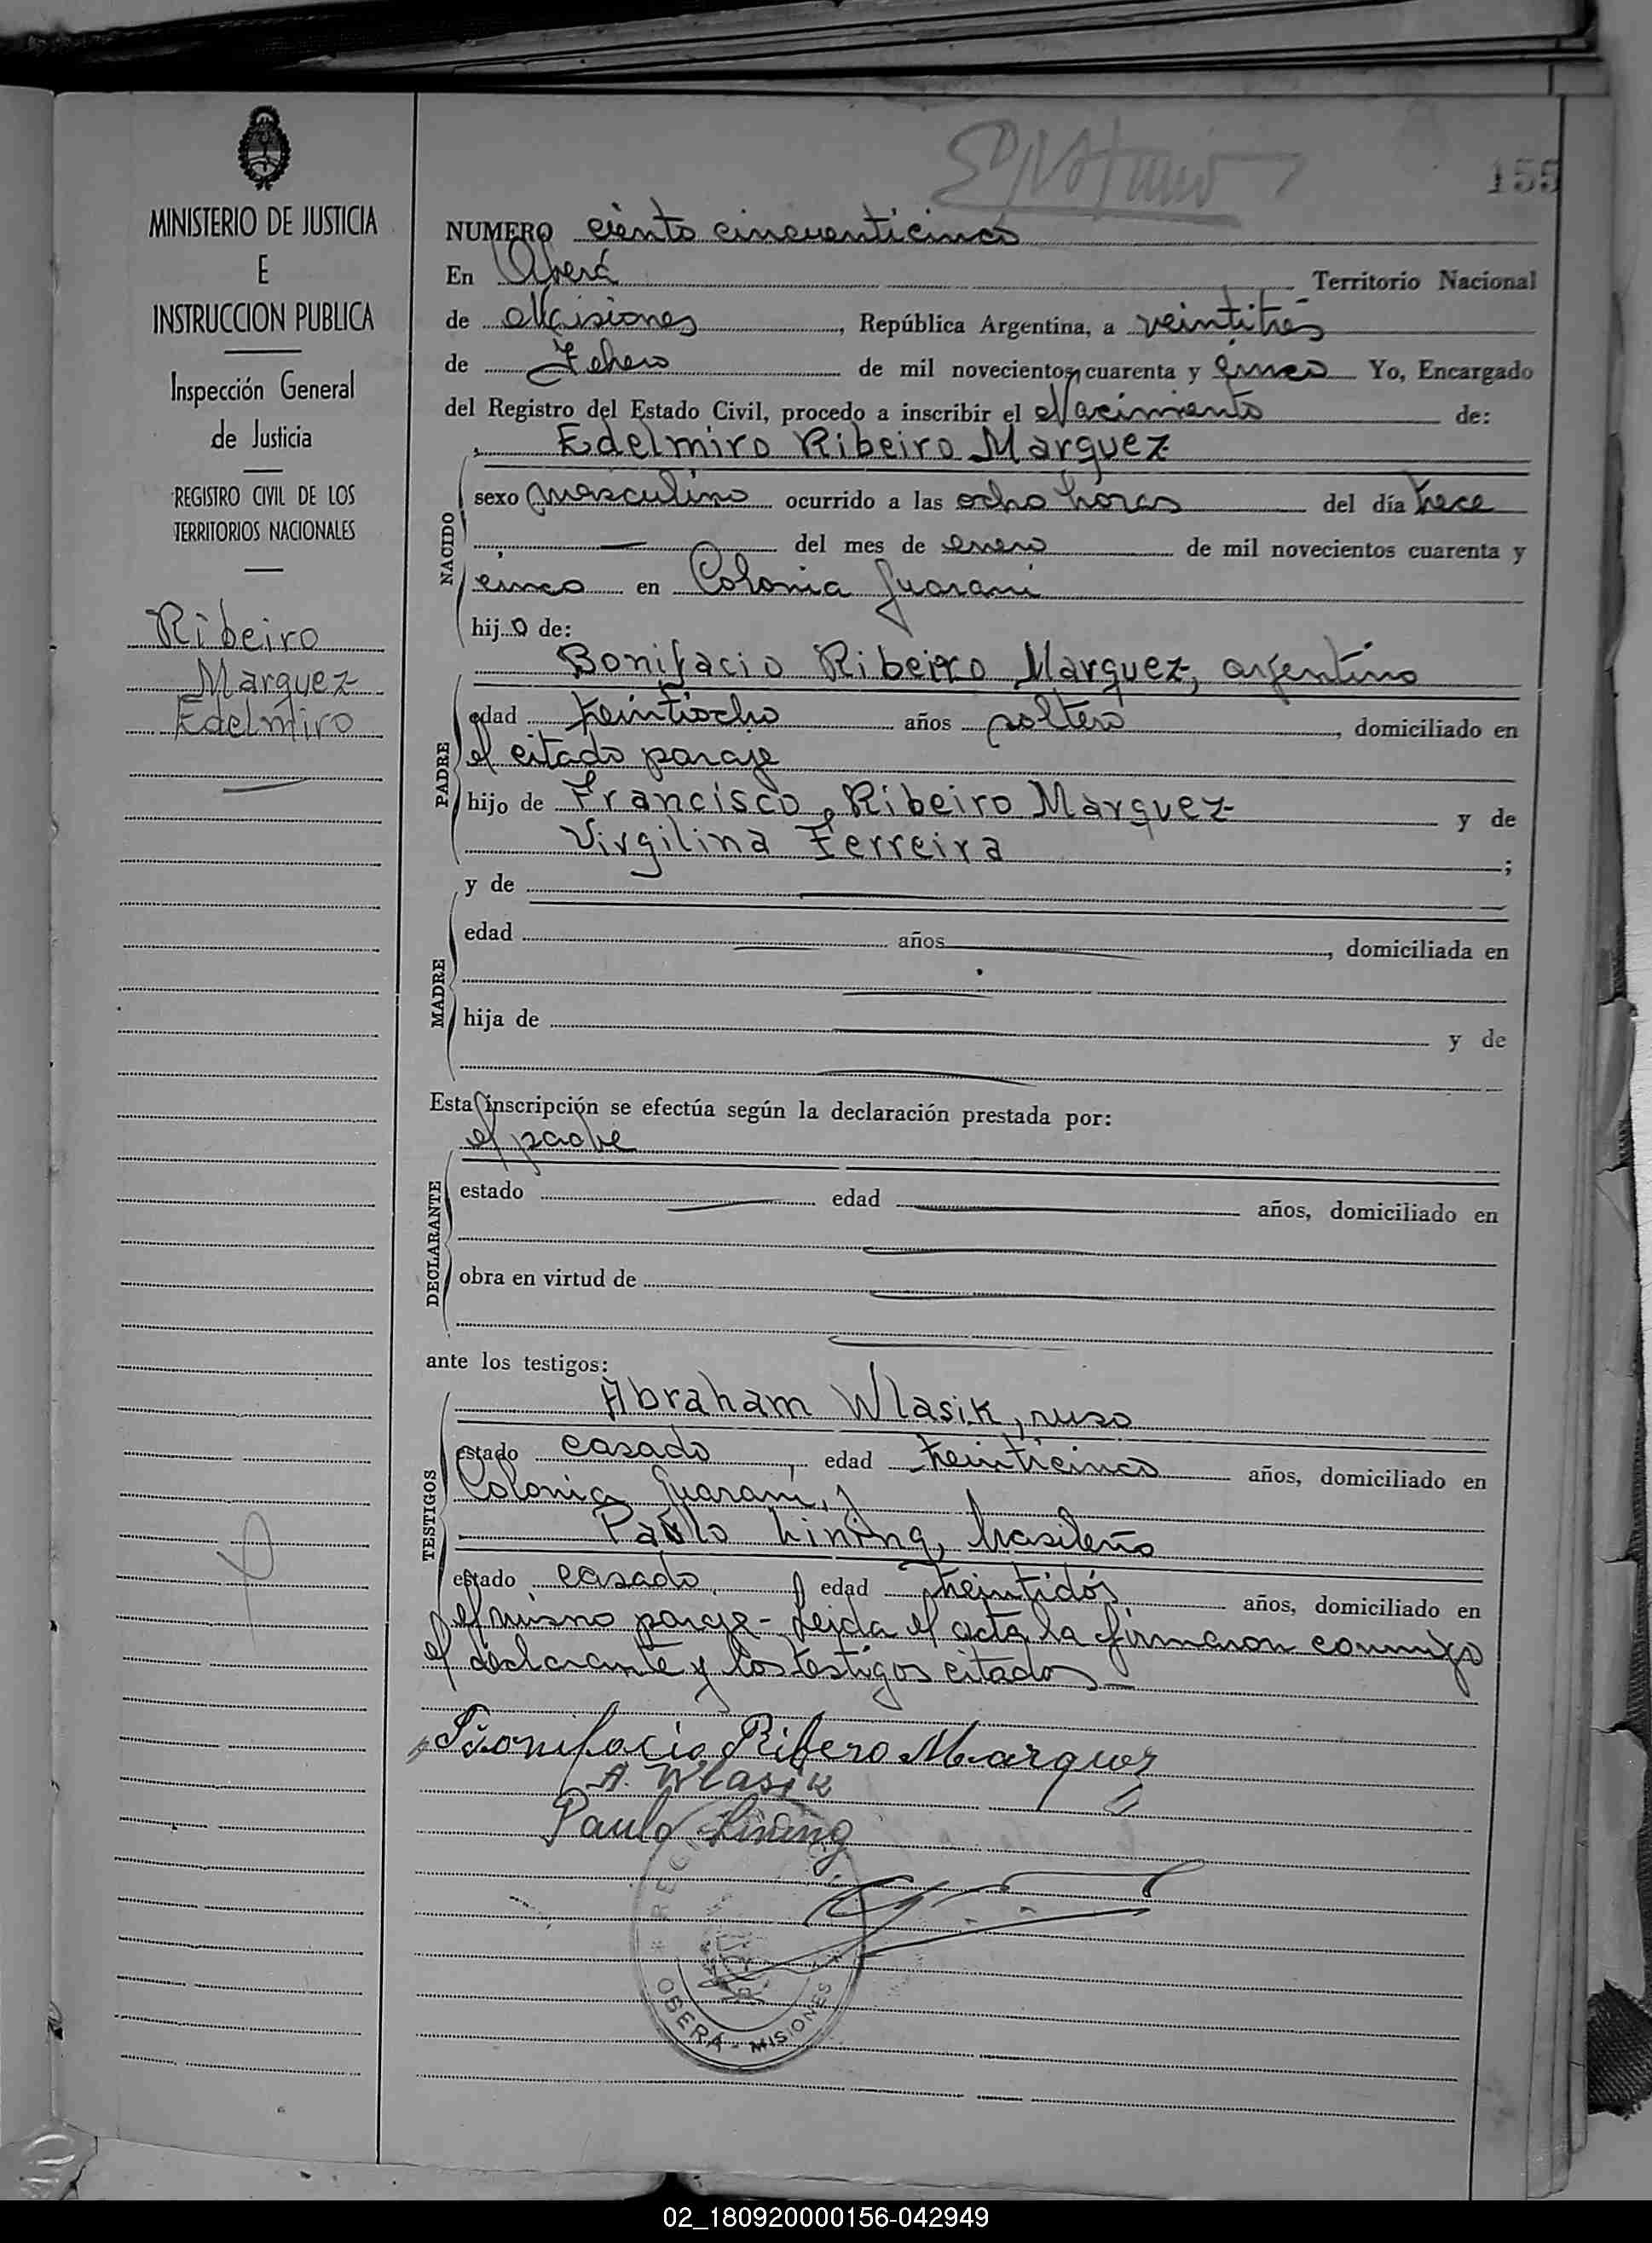 MINISTERIO DE JUSTICIA
E
INSTRUCCION PUBLICA
Inspección General
de Justicia
REGISTRO CIVIL DE LOS
TERRITORIOS NACIONALES
Ribeiro
Marquez
Edelmiro
155
NUMERO ciento cincuenticinco
En Oberá Territorio Nacional
de Misiones, República Argentina, a veintitrés
de Febrero de mil novecientos cuarenta y cinco Yo, Encargado
del Registro del Estado Civil, procedo a inscribir el Nacimiento de:
Edelmiro Ribeiro Marquez
NACIDO
sexo masculino ocurrido a las ocho horas del día trece
del mes de enero de mil novecientos cuarenta y
cinco en Colonia Guarani
hijo de:
Bonifacio Ribeiro Marquez, argentino
PADRE
edad treintiocho años soltero, domiciliado en
el citado paraje
hijo de Francisco Ribeiro Marquez y de
Virgilina Ferreira;
y de
MADRE
edad años, domiciliada en
hija de y de
Esta inscripción se efectúa según la declaración prestada por:
el padre
DECLARANTE
estado edad años, domiciliado en
obra en virtud de
ante los testigos:
Abraham Wlasik, ruso
TESTIGOS
estado casado, edad treinticinco años, domiciliado en
Colonia Guarani, y
Paulo Lining, brasileño
estado casado, edad treintidós años, domiciliado en
el mismo paraje - Leida el acta la firmaron conmigo
el declarante y los testigos citados -
Bonifacio Ribero Marquez
A. Wlasik
Paulo Lining
REG
OBERÁ - MISIONES
02_180920000156-042949